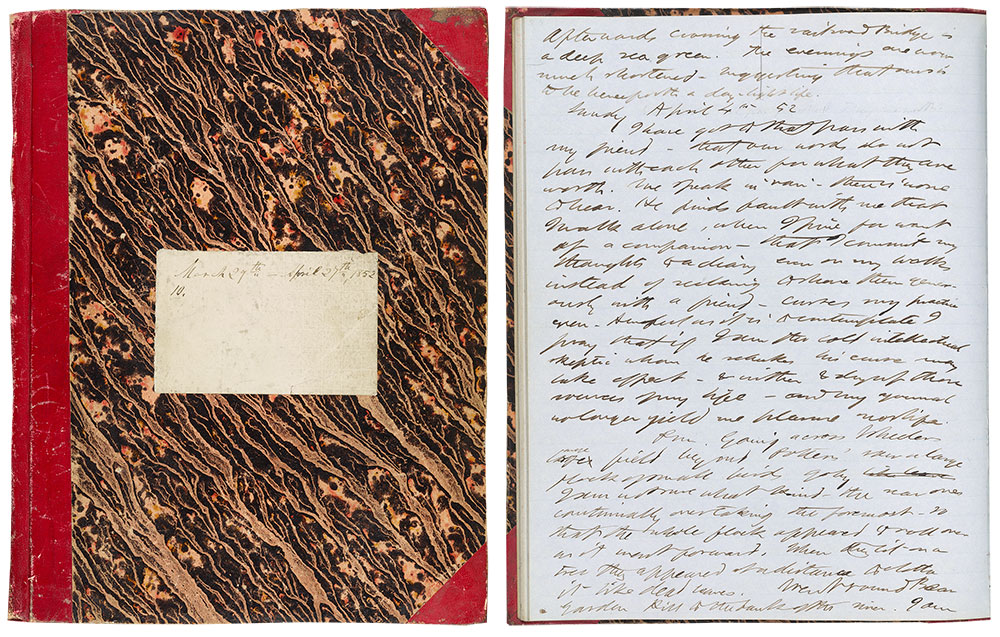 March 29th — April 27th 1852
10.
Afterwards crossing the railroad Bridge is
a deep sea green. The evenings are now
much shortened — suggesting that ours is
to be henceforth a day-light life.
Sunday April 4th 52
I have got to that pass with
my friend — that our words do not
pass with each other for what they are
worth. We speak in vain — there is none
to hear. He finds fault with me that
I walk alone, when I pine for want
of a companion — that I commit my
thoughts to a diary even on my walks
instead of seeking to share them
with a friend — curses my practice
even — Awful as it is to contemplate I
pray that if I am the cold intellectual
skeptic whom he rebukes his curse may
take effect — & wither & dry up those
sources of my life — and my journal
no longer yield me pleasure nor life.
P.m. Going across Wheeler's
field beyond saw a large
flock of small birds go by
I am not sure what kind — the rear ones
continually overtaking the foremost — so
that the whole flock appeared to roll over
as it went forward. When they lit on a
tree they appeared at a distance to clothe
it like dead leaves. Went round Bear
Garden Hill to the bank of the river. I am